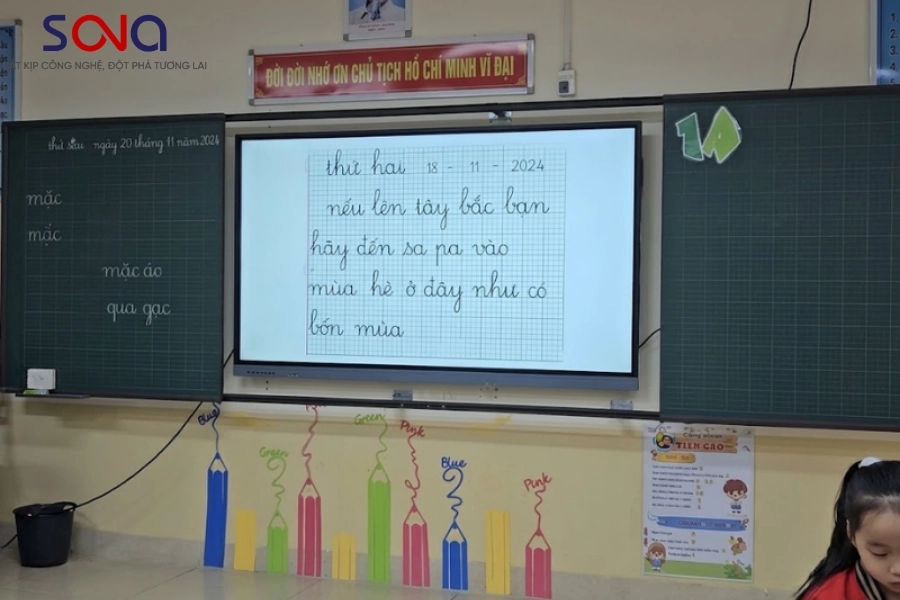 SONA
T KỊP CÔNG NGHỆ, ĐỘT PHÁ TƯƠNG LAI
ĐỜI ĐỜI NHỚ ƠN CHỦ TỊCH HỒ CHÍ MINH VĨ ĐẠI
thứ sáu ngày 20 tháng 11 năm 2024
mặc
mặc
mặc áo
qua gạc
thứ hai 18 - 11 - 2024
nếu lên tây bắc bạn
hãy đến sa pa vào
mùa hè ở đây như có
bốn mùa
1A
Blue
Green
Green
Pink
Blue
Pink